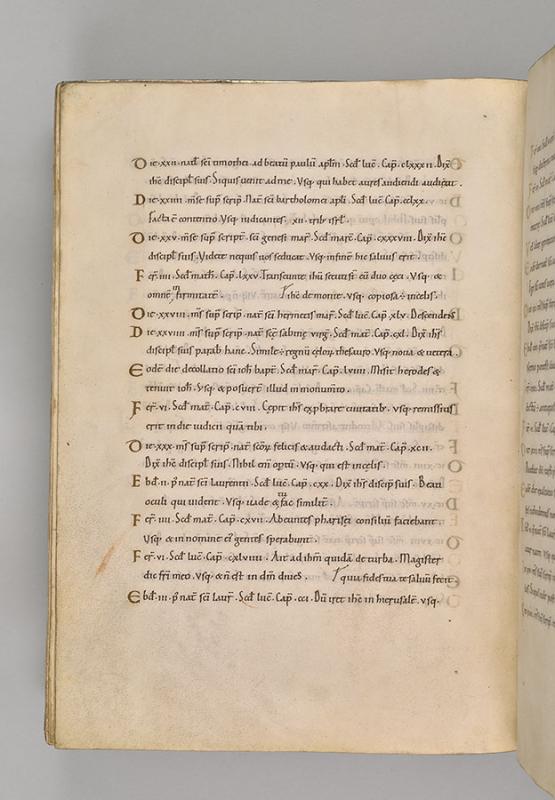 Die · xxii · nat̄ sc̄i timothei ad beatū paulū apłm · Scd̄ luc̄ · Cap̄ · clxxxii · Dix̄
ihc̄ discipl̄ suis · Siquis uenit ad me · Vsq; qui habet aures audiendi audiat ·
D ie · xxiiii · m̄se sup̄ scrip̄ · Nat̄ sc̄i bartholomei apłi · Scd̄ luc̄ · Cap̄ · clxx ·
Facta ē contentio · Vsq; iudicantes · xii · trib; isrł ·
Die · xxv · m̄se sup̄ script̄ · sc̄i genesi mar̄ · Scd̄ marc̄ · Cap̄ · cxxxviii · Dix̄ ihc̄
discipł suis · Videte nequis uos seducat · Vsq; in finē hic saluus erit ·
Fer̄ · iiii · Scd̄ math̄ · Cap̄ · lxxv · Transeunte ihū secuti sē eū duo ceci · Vsq; &
omnē infirmitatē · ihc̄ de monte · vsq; copiosa ÷ in celis ·
Die · xxviii · m̄s sup̄ scrip̄ · nat̄ sc̄i hermetis mar̄ · Scd̄ luc̄ · Cap̄ · xlv · Descendens
D ie · xxviiii · m̄s sup̄ scrip̄ · nat̄ scē sabine virḡ · Scd̄ mat̄ · Cap̄ · cxl · Dix̄ ihc̄
discipł suis parab hanc · Simile ÷ regnū celor̄ thesauro · Vsq; noua & uetera ·
Eodē die decollatio sc̄i ioh̄ bapt̄ · Scd̄ mar̄ · Cap̄ · lviii · Misit herodes &
tenuit ioh̄ · Vsq; & posuer̄ illud in monum̄to ·
Fer̄ · vi · Scd̄ mat̄ · Cap̄ · cviii · Cępit ihc̄ exp̄brare ciuitatib; · vsq; remissius
erit in die iudicii quā tibi ·
Die · xxx · m̄s sup̄ scrip̄ · nat̄ scōr̄ felicis & audacti · Scd̄ mat̄ · Cap̄ · xcii ·
Dix̄ ihc̄ discipł suis · Nihil eni optū · Vsq; qui est in celis ·
Ebd̄ · ii · p̄ nat̄ sc̄i laurentii · Scd̄ luc̄ · Cap̄ · cxx · Dix̄ ihc̄ discip̄ suis · Beati
oculi qui uident · Vsq; uade & tu fac similit̄ ·
Fer̄ · iiii · Scd̄ mat̄ · Cap̄ · cxvii · Abeuntes pharisei consiliū faciebant ·
Vsq; & in nomine ei gentes sperabunt ·
Fer̄ · vi · Scd̄ luc̄ · Cap̄ · cxlviiii · Ait ad ihm̄ quidā de turba · Magister
dic fr̄i meo · Vsq; & n̄ est in dm̄ diues · quia fides tua te saluū fecit
Ebd̄ · iii · p̄ nat̄ sc̄i laur̄ · Scd̄ luc̄ · Cap̄ · cci · Dū iret ihc̄ in herusalē · vsq;